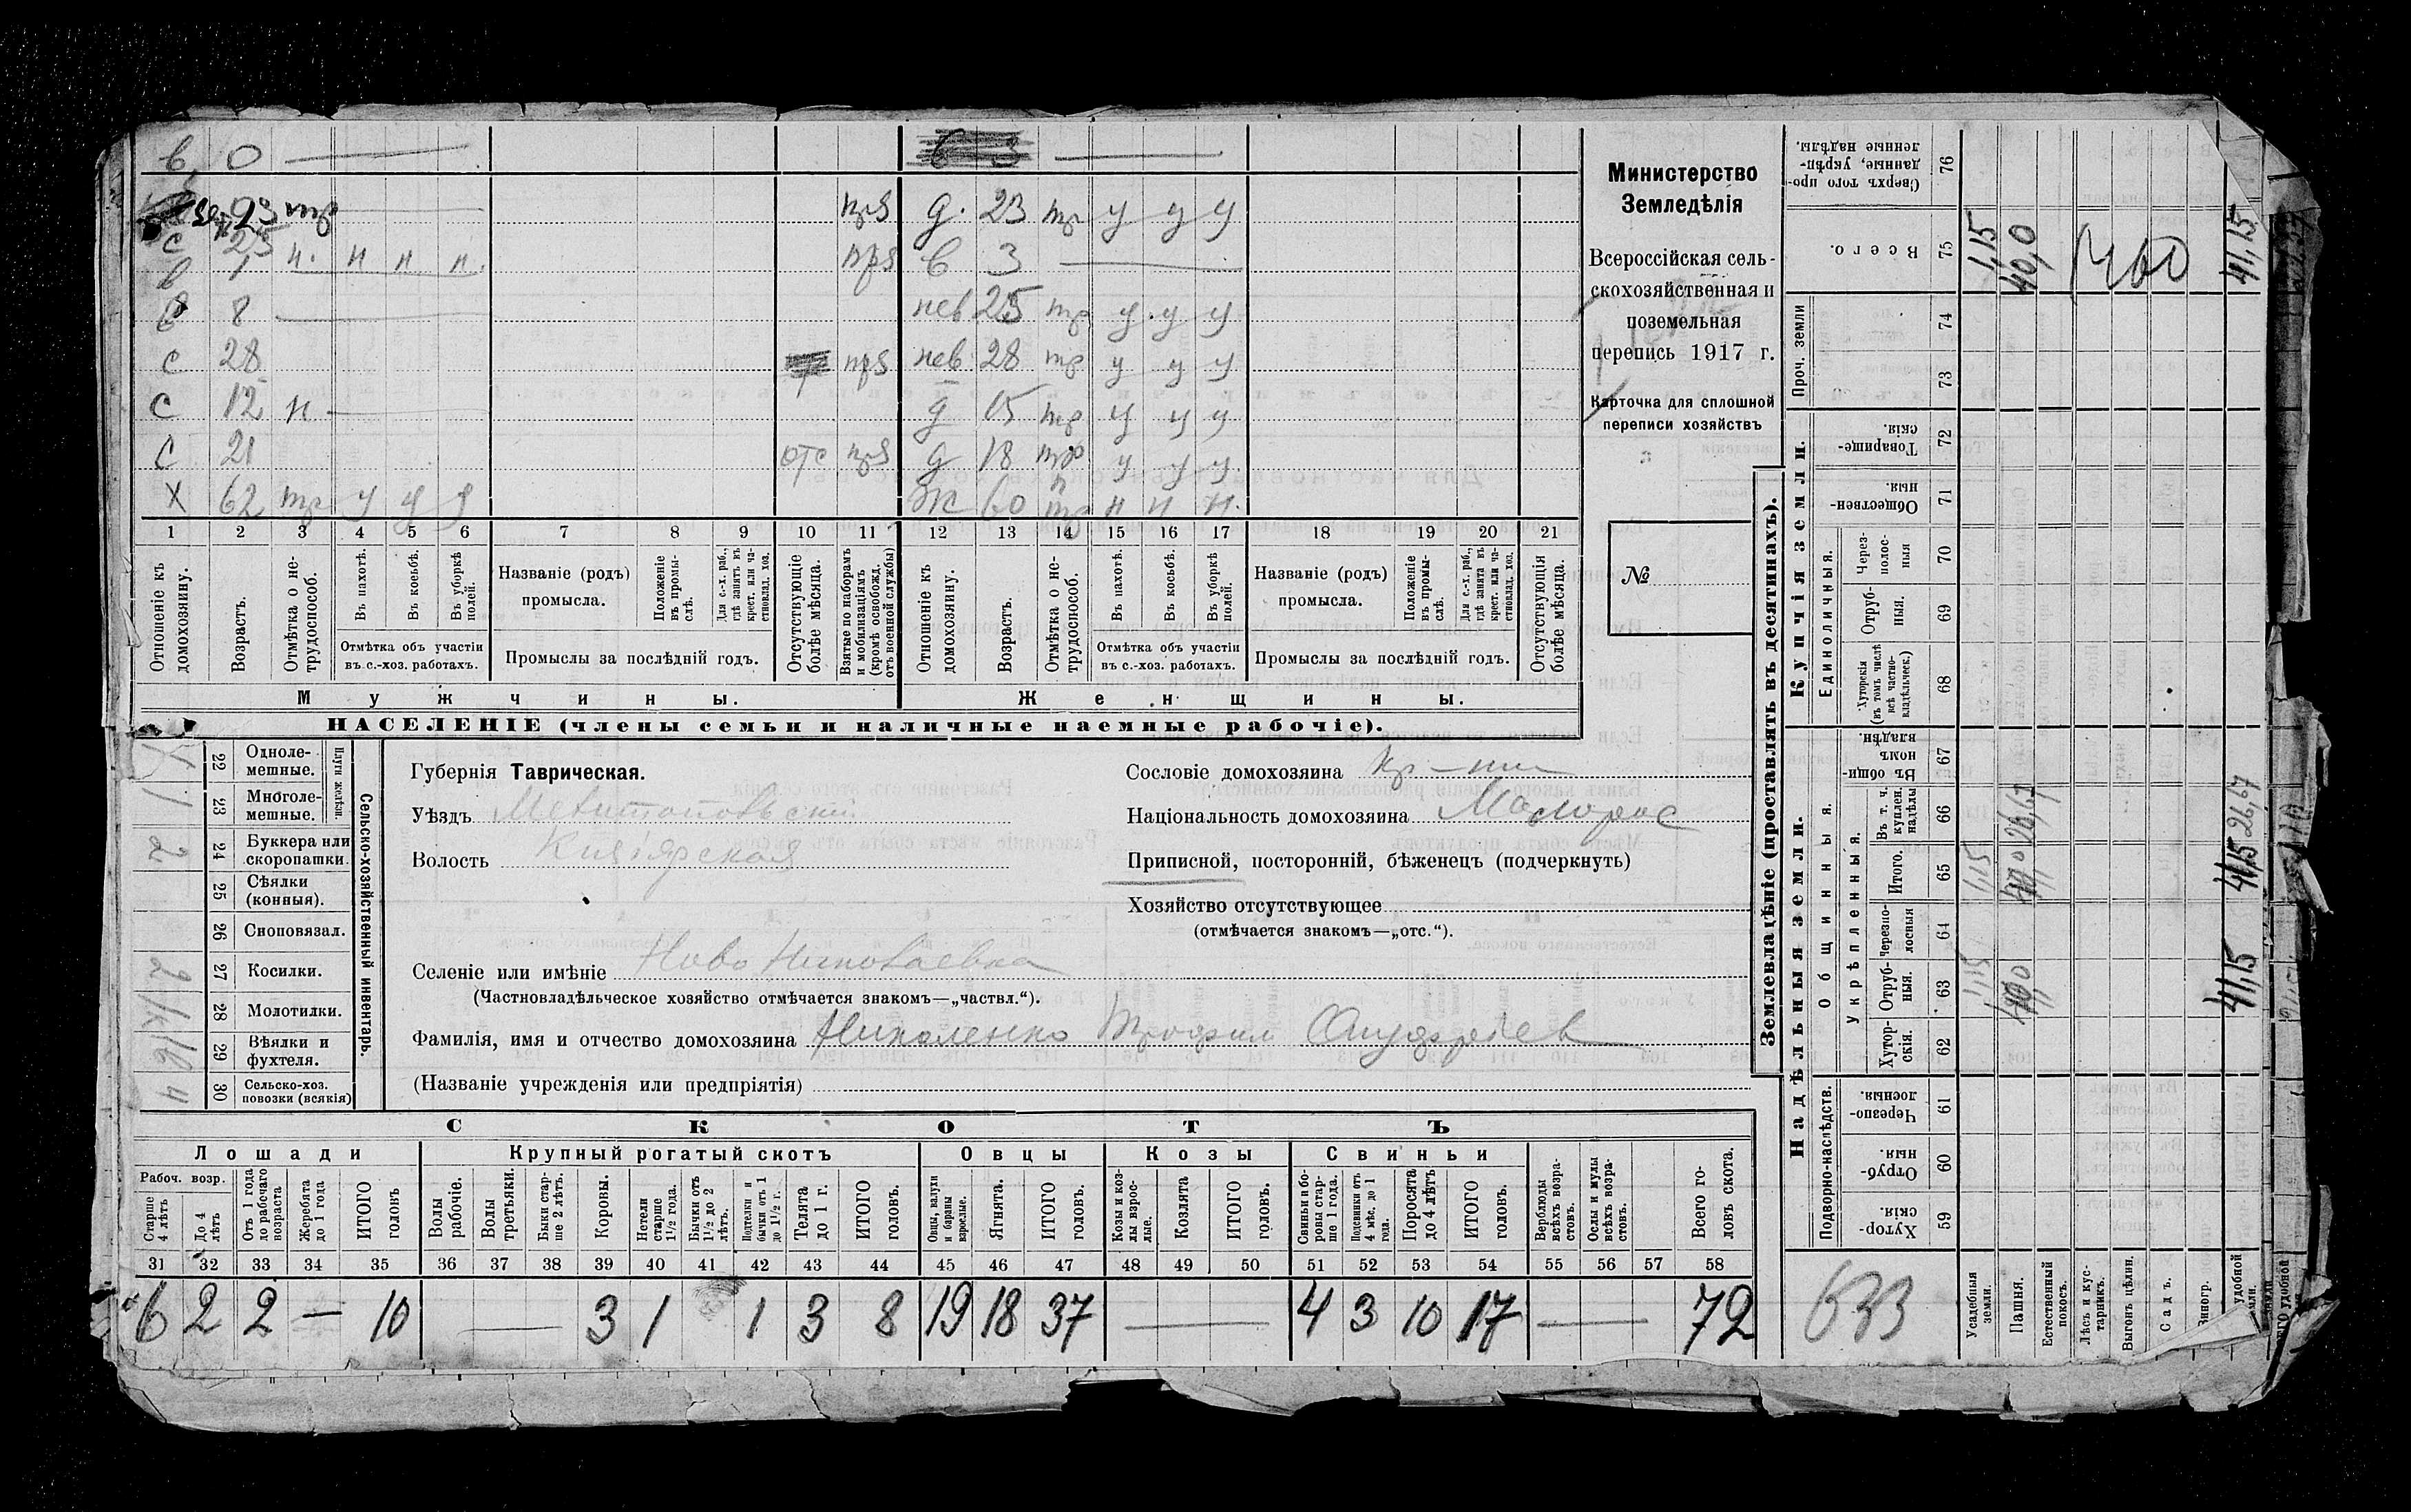 в 0
д. 23 тр у у у
с 25 н. н н н. в 3
в 1
в 8 нев 25 тр у у у
с 28 нев 28 тр у у у
с 12 н д 15 тр у у у
с 21 отс д 18 тр у у у
х 62 тр у у у ж 60 н н н.
1 2 3 4 5 6 7 8 9 10 11 12 13 14 15 16 17 18 19 20 21
Отношеніе къ домохозяину.
Возрастъ.
Отмѣтка о не-трудоспособ.
Въ пахотѣ.
Въ косьбѣ.
Въ уборкѣ полей.
Отмѣтка объ участіи
въ с.-хоз. работахъ.
Названіе (родъ)
промысла.
Положеніе въ промы-слѣ.
Для с.-х. раб., гдѣ занятъ въ крест. или ча-стновлад. хоз.
Промыслы за послѣдній годъ.
Отсутствующіе болѣе мѣсяца.
Взятые по наборамъ и мобилизаціямъ (кромѣ освобожд. отъ военной службы)
Отношеніе къ домохозяину.
Возрастъ.
Отмѣтка о не-трудоспособ.
Въ пахотѣ.
Въ косьбѣ.
Въ уборкѣ полей.
Отмѣтка объ участіи
въ с.-хоз. работахъ.
Названіе (родъ)
промысла.
Положеніе въ промы-слѣ.
Для с.-х. раб., гдѣ занята въ крест. или ча-стновлад. хоз.
Промыслы за послѣдній годъ.
Отсутствующія болѣе мѣсяца.
Мужчины.
Женщины.
НАСЕЛЕНІЕ (члены семьи и наличные наемные рабочіе).
Министерство
Земледѣлія
Всероссійская сель-
скохозяйственная и
поземельная
перепись 1917 г.
Карточка для сплошной
переписи хозяйствъ
№
22 Одноле-мешные.
23 Многоле-мешные. 1
Плуги желѣзн.
24 Буккера или скоропашки. 2
25 Сѣялки (конныя).
26 Сноповязал.
27 Косилки. 2
28 Молотилки.
29 Вѣялки и фухтеля.
30 Сельско-хоз. повозки (всякія) 4
Сельско-хозяйственный инвентарь.
Губернія Таврическая.
Уѣздъ Мелитопольскій
Волость Кизіярская
Селеніе или имѣніе Ново Николаевка
(Частновладѣльческое хозяйство отмѣчается знакомъ—„частвл.“).
Фамилія, имя и отчество домохозяина Николенко Трофим
(Названіе учрежденія или предпріятія)
Сословіе домохозяина кр-нин
Національность домохозяина Малорос
Приписной, посторонній, бѣженецъ (подчеркнуть)
Хозяйство отсутствующее
(отмѣчается знакомъ—„отс.“).
СКОТЪ
Лошади
Крупный рогатый скотъ
Овцы
Козы
Свиньи
Рабоч. возр.
Старше 4 лѣтъ
До 4 лѣтъ
Отъ 1 года до рабочаго возраста
Жеребята до 1 года
ИТОГО головъ
Волы рабочіе.
Волы третьяки.
Быки стар-ше 2 лѣтъ.
Коровы.
Нетели старше 1½ года.
Бычки отъ 1½ до 2 лѣтъ.
Подтелки и бычки отъ 1 до 1½ г.
Телята до 1 г.
ИТОГО головъ.
Овцы, валухи и бараны взрослые.
Ягнята.
ИТОГО головъ.
Козы и коз-лы взрос-лые.
Козлята
ИТОГО головъ.
Свиньи и бо-ровы стар-ше 1 года.
Подсвинки отъ 4 мѣс. до 1 года.
Поросята до 4 лѣтъ
ИТОГО головъ.
Верблюды всѣхъ возра-стовъ.
Ослы и мулы всѣхъ возра-стовъ.
Всего го-ловъ скота.
31 32 33 34 35 36 37 38 39 40 41 42 43 44 45 46 47 48 49 50 51 52 53 54 55 56 57 58
6 2 2 — 10 — 3 1 1 3 8 19 18 37 — 4 3 10 17 — 72
Землевладѣніе (проставлять въ десятинахъ).
Купчія земли.
Надѣльныя земли.
Сверхъ того про-данные, укрѣп-ленные надѣлы. 76
Всего. 75 1,15 40,0 41,15
Проч. земли 74 73
Товарище-скія. 72
Обществен-ныя. 71
Единоличныя.
Через-полос-ныя 70
Отруб-ныя. 69
Хуторскія (въ томъ числѣ всѣ частно-владѣльческ.) 68
Общинныя.
Въ общин-номъ владѣн. 67
Укрѣпленныя.
Въ т. ч. куплен. надѣлы 66 26,67 26,67
Итого. 65 1,15 41,15
Черезпо-лосныя 64
Отруб-ныя. 63 1,15 41,15
Хутор-скія. 62
Подворно-наслѣдств.
Черезпо-лосныя. 61
Отруб-ныя. 60
Хутор-скія. 59
633
Усадебныя земли.
Пашня.
Естественный покосъ.
Лѣсъ и кус-тарникъ.
Выгонъ цѣлин.
Садъ.
удобной